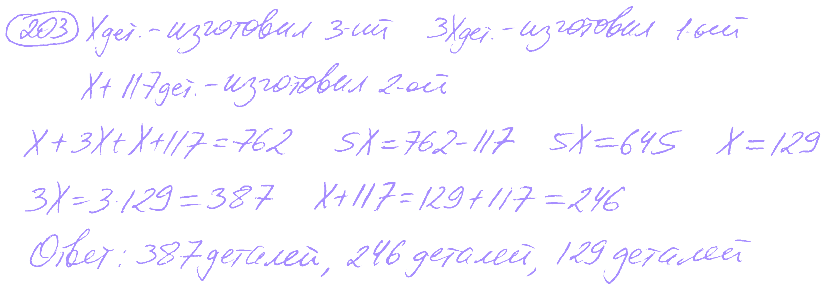 203 Xдет.-изготовил 3-ий 3Xдет.-изготовил 1-ый
X+117дет.-изготовил 2-ой
X+3X+X+117=762 5X=762-117 5X=645 X=129
3X=3·129=387 X+117=129+117=246
Ответ: 387 деталей, 246 деталей, 129 деталей